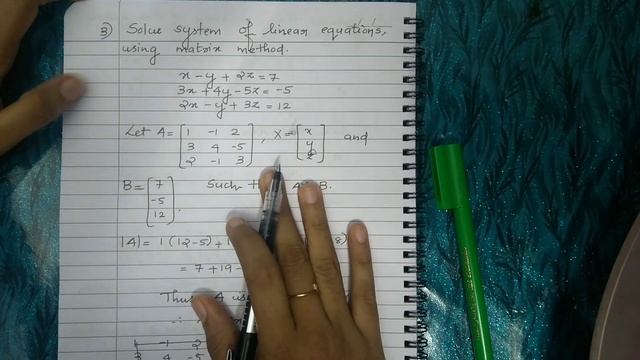 3) Solve system of linear equations,
using matrix method.
x - y + 2z = 7
3x + 4y - 5z = -5
2x - y + 3z = 12
Let A = [1 -1 2
3 4 -5
2 -1 3] , X = [x
y
z] and
B = [7
-5
12] . Such B.
|A| = 1 (12-5) + 8)
= 7 + 19 -
Thus A is